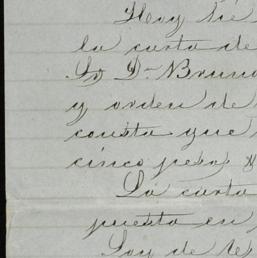 Hoy
la carta de
Sr Dn Bruno
y orden de
consta que
cinco pesos
La carta
puesta en
Soy de